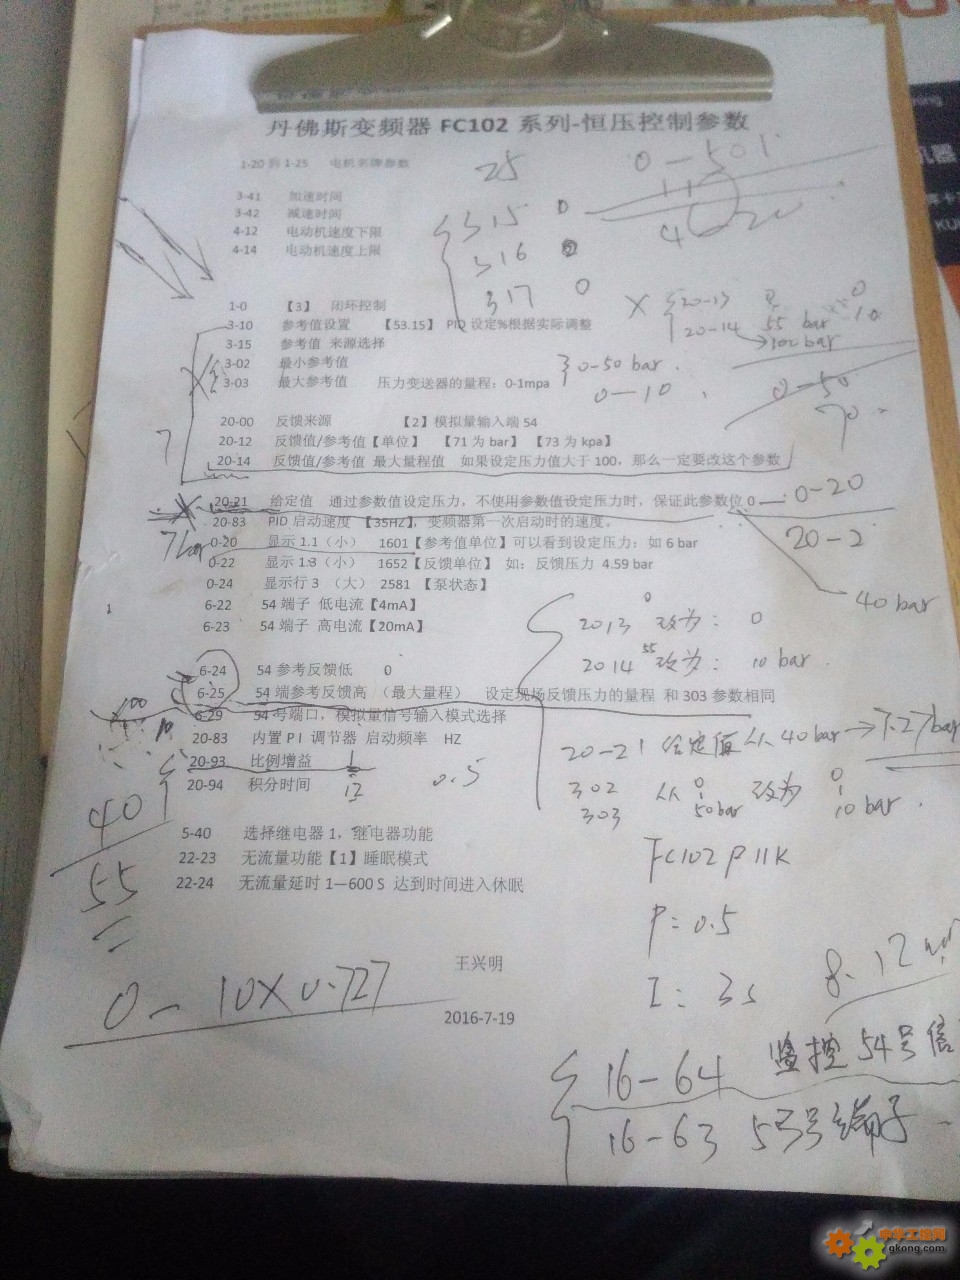 丹佛斯变频器 FC102 系列-恒压控制参数
1-20 到 1-25 电机名牌参数
25
0-501
3-41 加速时间
3-42 减速时间
4-12 电动机速度下限
4-14 电动机速度上限
315 0
316
317 0
4 20
1-0 【3】 闭环控制
3-10 参考值设置 【53.15】 PID 设定%根据实际调整
3-15 参考值 来源选择
3-02 最小参考值
3-03 最大参考值 压力变送器的量程：0-1mpa
20-13 0
20-14 55 bar 10
→100 bar
0-50 bar
0-10
0-50
70
20-00 反馈来源 【2】模拟量输入端 54
20-12 反馈值/参考值【单位】 【71 为 bar】 【73 为 kpa】
20-14 反馈值/参考值 最大量程值 如果设定压力值大于 100，那么一定要改这个参数
7
20-21 给定值 通过参数值设定压力，不使用参数值设定压力时，保证此参数位 0
0-20
20-83 PID 启动速度 【35HZ】，变频器第一次启动时的速度。
20-2
7bar
0-20 显示 1.1（小） 1601【参考值单位】可以看到设定压力：如 6 bar
0-22 显示 1.3（小） 1652【反馈单位】 如：反馈压力 4.59 bar
0-24 显示行 3 （大） 2581 【泵状态】
40 bar
1
6-22 54 端子 低电流【4mA】
6-23 54 端子 高电流【20mA】
2013 0 改为： 0
2014 55 改为： 10 bar.
6-24 54 参考反馈低 0
6-25 54 端参考反馈高 （最大量程） 设定现场反馈压力的量程 和 303 参数相同
6-29 54 号端口，模拟量信号输入模式选择
100
10
20-83 内置 PI 调节器 启动频率 HZ
20-93 比例增益
20-94 积分时间 12
0.5
20-21 给定值从 40 bar → 7.27 bar
302 从 0 改为 0
303 50bar 10 bar.
40
55
5-40 选择继电器 1，继电器功能
22-23 无流量功能【1】睡眠模式
22-24 无流量延时 1—600 S 达到时间进入休眠
FC102 P11K
P=0.5
I: 3s
8.12
王兴明
2016-7-19
0-10X0.727
16-64 监控 54号信
16-63 53号端子
中华工控网
gkong.com